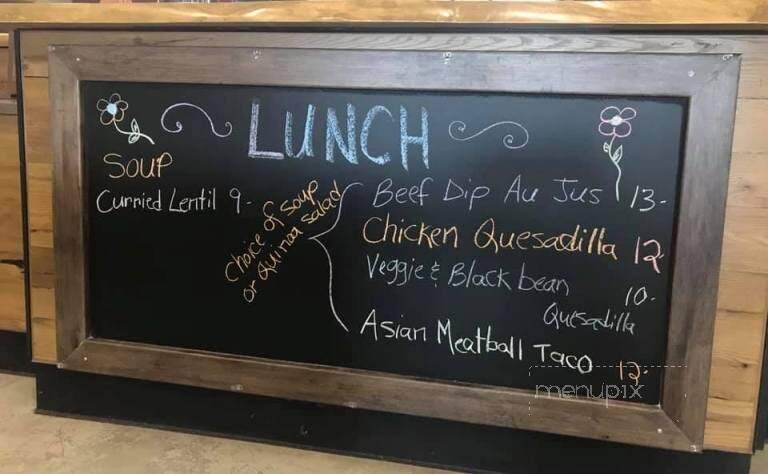 LUNCH
SOUP
Curried Lentil 9-
choice of soup
or quinoa salad
Beef Dip Au Jus 13-
Chicken Quesadilla 12
Veggie & Black bean
Quesadilla 10-
Asian Meatball Taco 12-
menupix